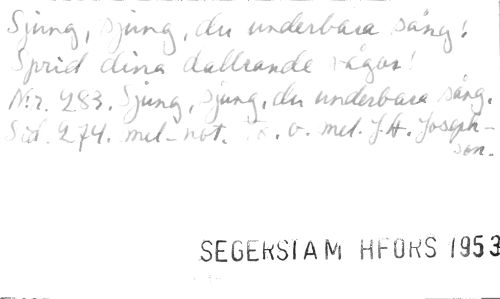 Sjung, sjung, du underbara sång!
Sprid dina dallrande vågor!
N:r. 283. Sjung, sjung, du underbara sång.
Sid. 274. mel-not. Tx. o. mel. J.A. Joseph-
son.
SEGERSTAM HFORS 1953